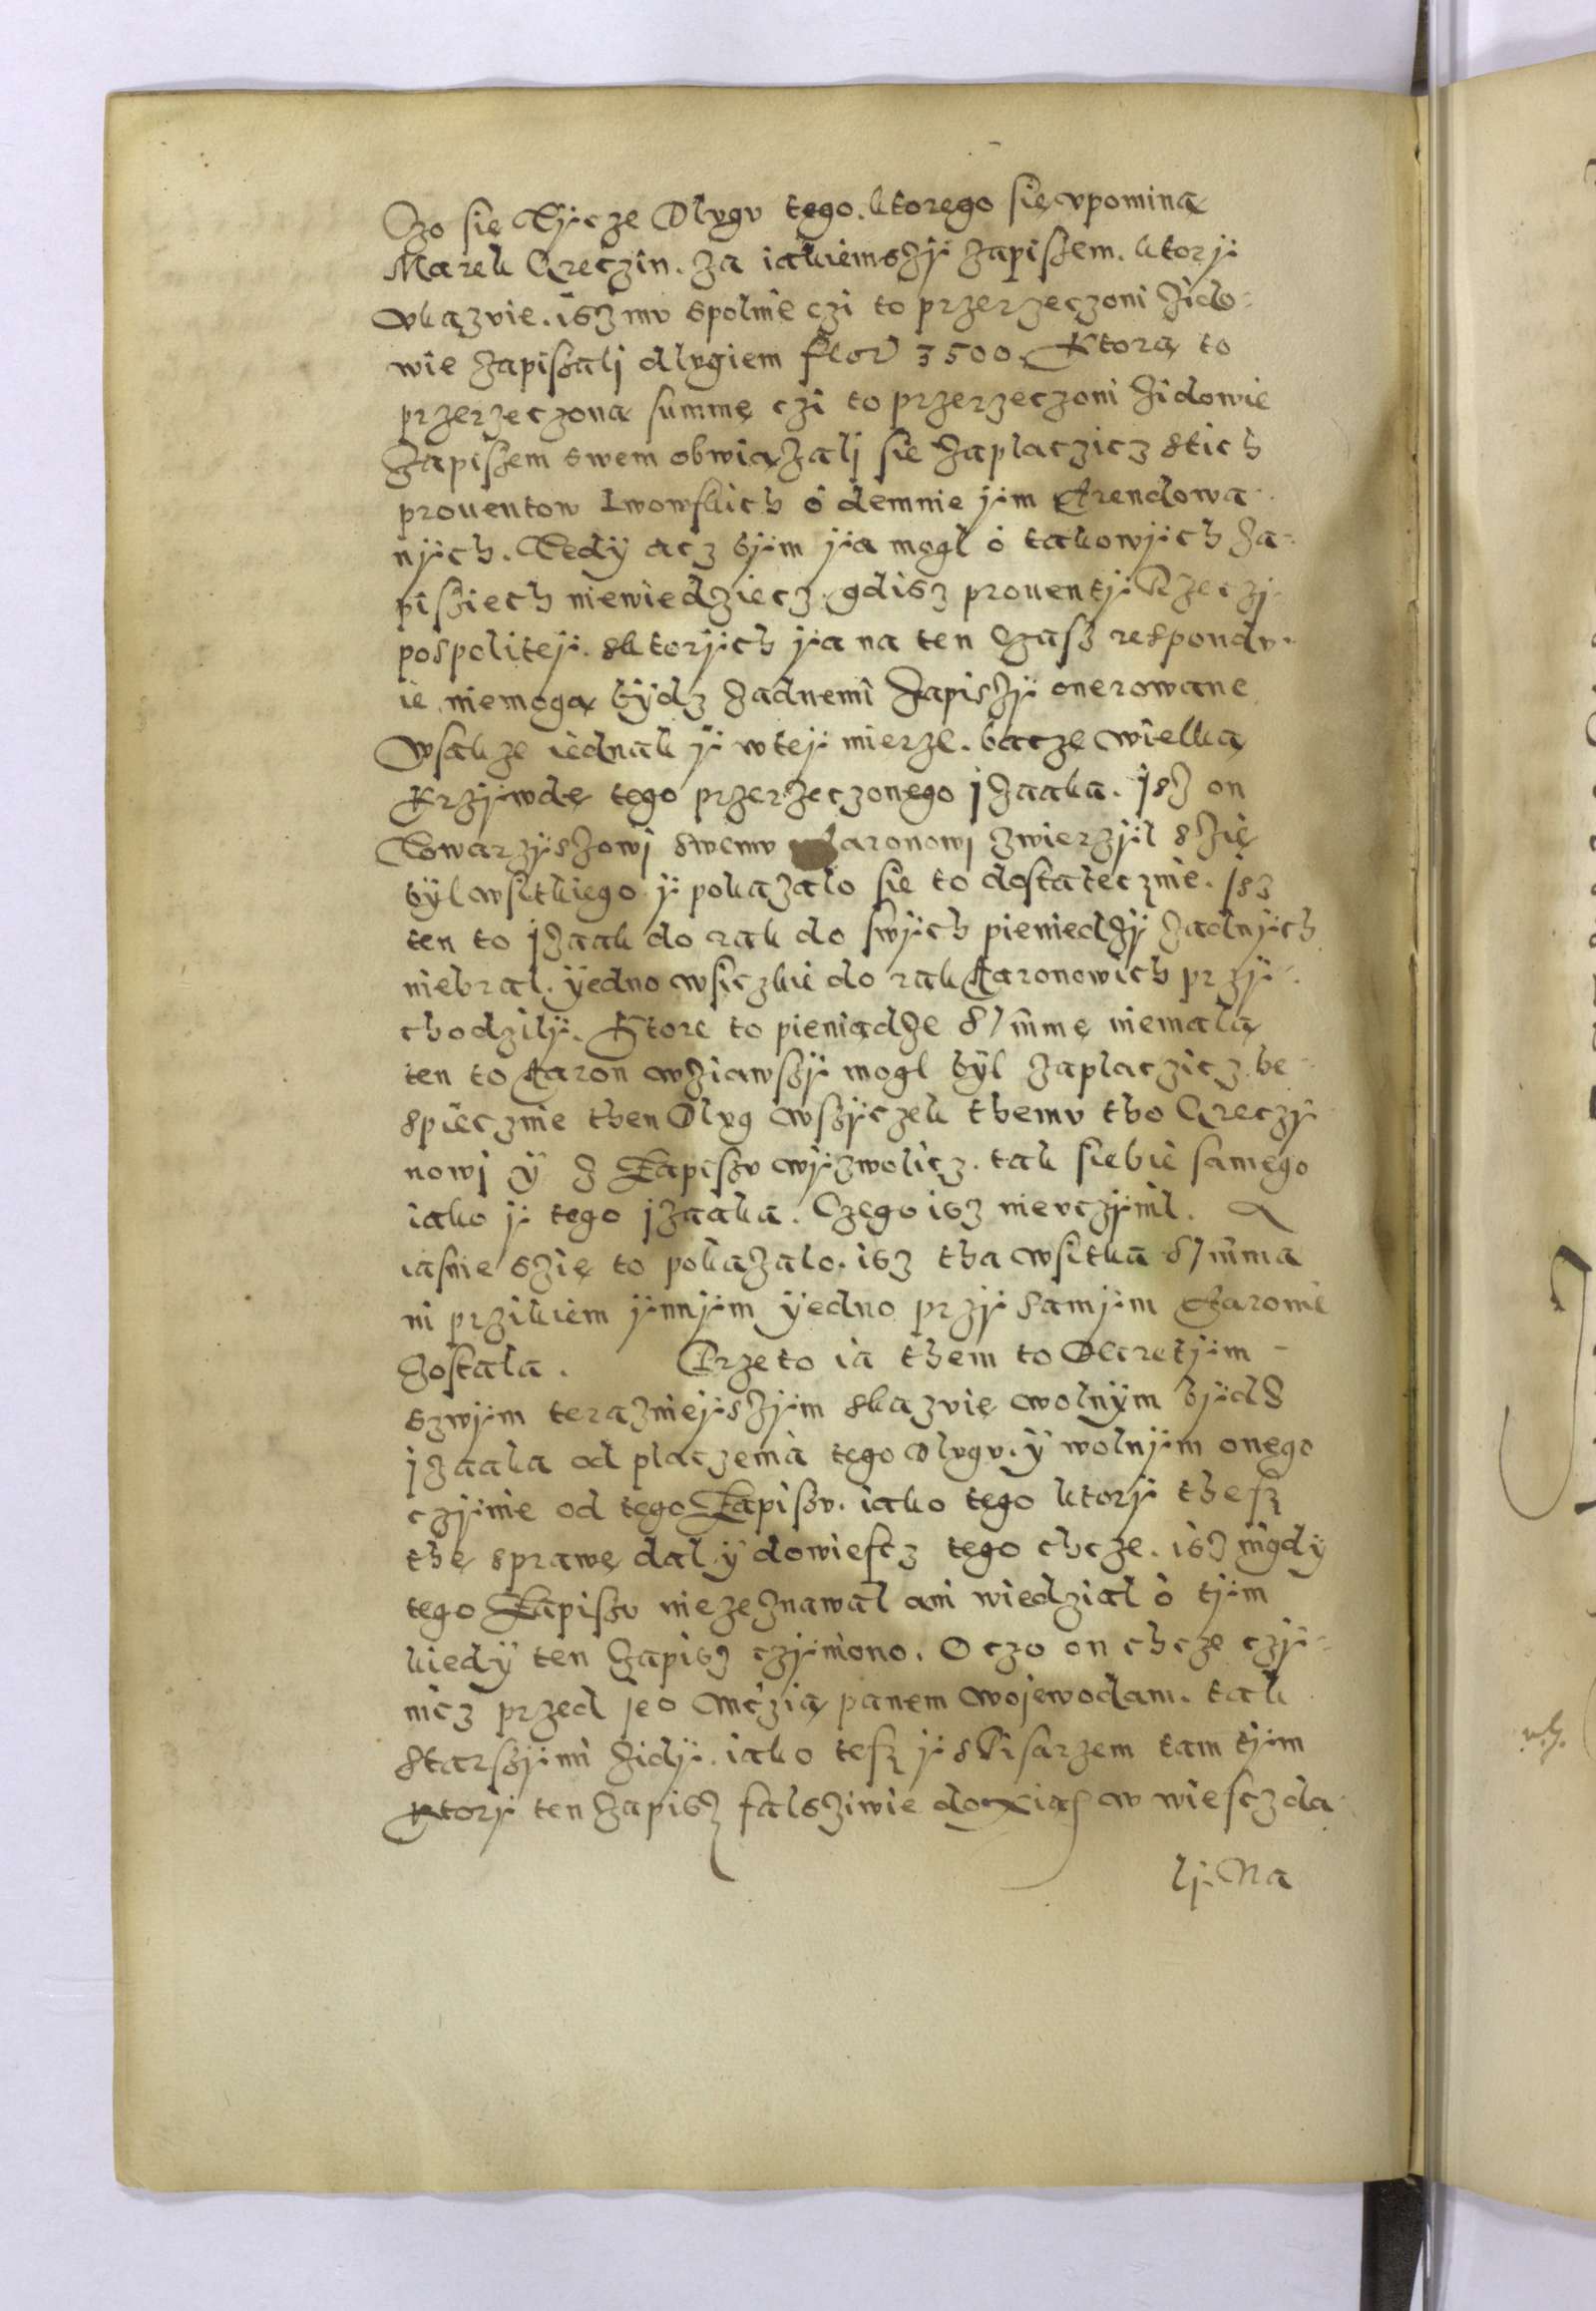 Czo się Tÿcze Dlugu tego. ktorego się vpomina
Marek Greczin. za iakiemszÿ zapiszem. ktorÿ
vkazuie. isz mv spolnie czi to przerzeczoni Zido-
wie zapiszalj dlugiem flor 3500. Ktorą to
przerzeczoną summę czi to przerzeczoni Zidowie
Zapiszem swem obwiązalj sie zaplaczicz stich
prouentow Lwowskich odemnie ÿm Arendowa-
nÿch. Tedÿ acz bÿm ÿa mogl o takowÿch za-
pisziech niewiedziecz. gdisz prouentÿ Rzeczj-
pospolitej. sktorÿch ÿa na ten Czasz respondu-
ie niemogą bÿdz zadnemi zapiszÿ onerowane
Wsakze iednak ÿ wtej mierze. bacze wielką
Krzÿwdę tego przerzeczonego jzaaka. jsz on
Towarzÿszowj swemv Aaronowj zwierzÿl szię
bÿl wsitkiego ÿ pokazalo sie to dostatecznie. jsz
ten to jzaak do rąk do swÿch pieniedzÿ zadnÿch
niebral. ÿedno wsiczkie do rąk Aaronowich przÿ-
chodzilÿ. Ktore to pieniądze summę niemalą
ten to Aaron wziąwszÿ mogl bÿl zaplaczicz be-
spiecznie then Dlug wszÿczek themv tho Greczÿ-
nowj ÿ z Zapiszv wÿzwolicz. tak siebie samego
iako ÿ tego jzaaka. Czego isz nievczÿnil. A
iasnie szię to pokazalo. isz tha wsitka summa
ni przikiem ÿnnÿm ÿedno przÿ samÿm Aaronie
Zostala. Przeto ia them to Decretÿm
szwÿm teraznieÿszÿm skazuię wolnÿm bÿds
jzaaka od placzenia tego dlugv. ÿ wolnÿm onego
czÿnie od tego Zapiszv. iako tego ktorÿ thesz
thę sprawę dal ÿ dowiescz tego chcze. isz nigdÿ
tego Zapiszv niezeznawal ani wiedzial o tÿm
kiedÿ ten zapisz czÿniono. O czo on chcze czÿ-
nicz przed jeo Mczią panem wojewodam. tak
starszÿmi Zidÿ. iako tesz ÿ sPisarzem tam tÿm
Ktorÿ ten zapisz falsziwie do xiąsz wwiescz da-
lj. Na